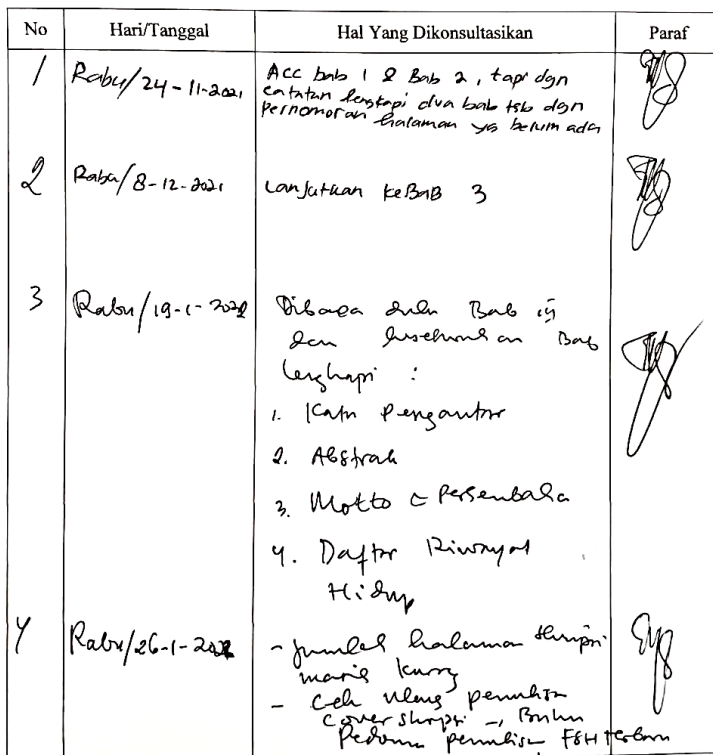 No Hari/Tanggal Hal Yang Dikonsultasikan Paraf
1 Rabu/24-11-2021 Acc bab 1 & Bab 2, tapi dgn
catatan lengkapi dua bab tsb dgn
penomoran halaman yg belum ada
2 Rabu/8-12-2021 Lanjutkan ke BAB 3
3 Rabu/19-1-2022 Dibaca dulu Bab
dan keseluruhan Bab
lengkapi :
1. Kata Pengantar
2. Abstrak
3. Motto Persembaha
4. Daftar Riwayat
Hidup
4 Rabu/26-1-2022 - Jumlah halaman skripsi
masih kurang
- Cek ulang penulisan
cover skripsi -, Buku
Pedoman penulisan FSH terbaru